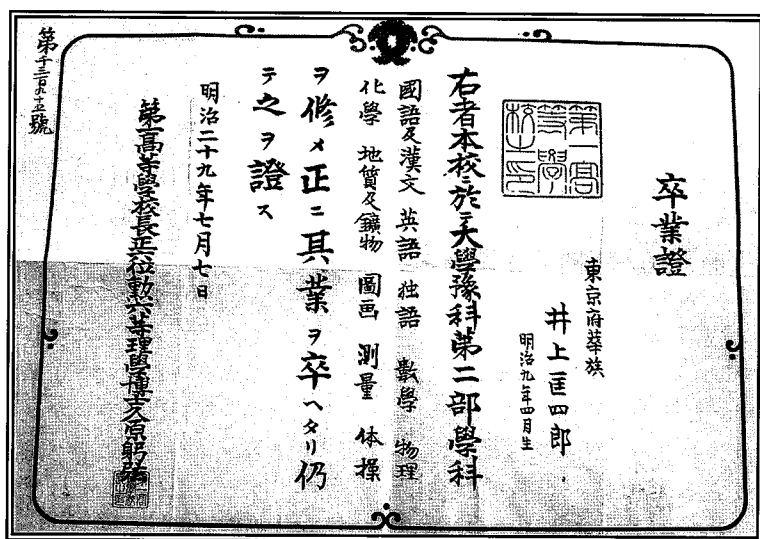 卒業證
東京府華族
井上匡四郎
明治九年四月生
第一高
等學
校之印
右者本校ニ於テ大學豫科第二部學科
國語及漢文 英語 独語 數學 物理
化學 地質及鑛物 圖画 測量 体操
ヲ修メ正ニ其業ヲ卒ヘタリ仍
テ之ヲ證ス
明治二十九年七月七日
第一高等學校長正六位勲六等理學博士久原躬弦
第千三百九十五號